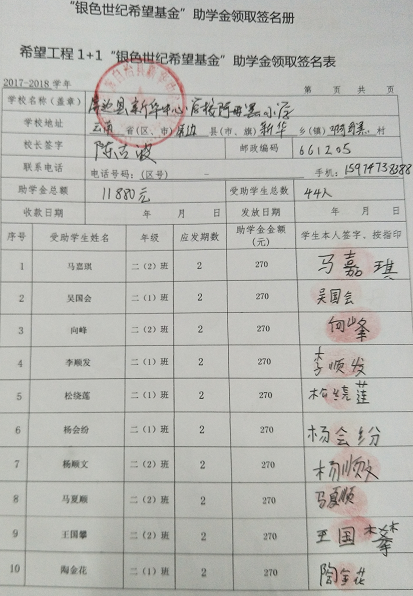 “银色世纪希望基金”助学金领取签名册
希望工程 1+1“银色世纪希望基金”助学金领取签名表
2017-2018 学年 第 页 共 页
学校名称(盖章) 屏边县新华中心校
学校地址 云南 省(区、市) 屏边 县(市、旗) 新华 乡(镇) 村
校长签字 邮政编码 661205
联系电话 电话号码:(区号) - 手机:
助学金总额 11880元 受助学生总数 44人
收款日期 年 月 日 发放日期 年 月 日
序号 受助学生姓名 年级 应发期数 助学金金额(元) 学生本人签字、按指印
1 马嘉琪 二(2)班 2 270 马嘉琪
2 吴国会 二(1)班 2 270 吴国会
3 向峰 二(2)班 2 270 向峰
4 李顺发 二(1)班 2 270 李顺发
5 松绕莲 二(1)班 2 270 松绕莲
6 杨会纷 二(1)班 2 270 杨会纷
7 杨顺文 二(2)班 2 270 杨顺文
8 马夏顺 二(2)班 2 270 马夏顺
9 王国攀 二(2)班 2 270 王国攀
10 陶金花 二(1)班 2 270 陶金花